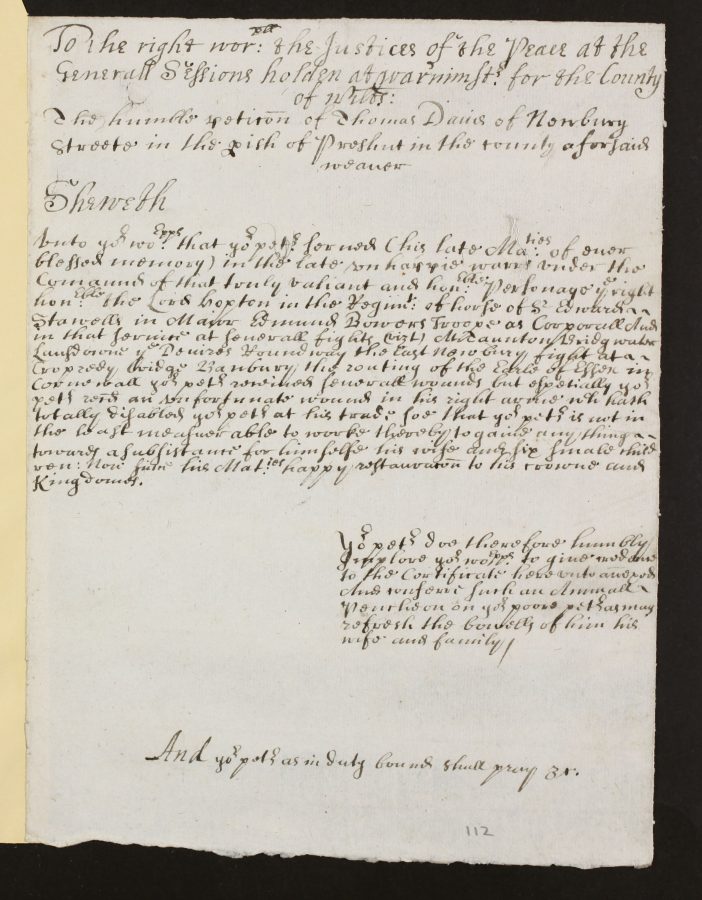 To the right wor:pll the Justices of the Peace at the
Generall Sessions holden at warminstr. for the County
of wilts:
The humble peticōn of Thomas Davis of Newbury
Streete in the pish of Preshut in the county aforsaid
weaver
Sheweth
Unto yor. wopps. that yor. petr. served (his late Maties. of ever
blessed memory) in the late unhappie warrs under the
Comaund of that truly valiant and honble: Personage ye right
honble. the Lord Hopton in the Regimt: of horse of Sr Edward
Stawells in Major Edmund Bowers Troope as Corporall And
in that service at severall fights (vizt) Att Taunton Bridgwater
Lansdowne ye Devizes Roundway the Last Newbury fight at a
Cropredy bridge Banbury, the routing of the Earle of Essex in
Cornewall yor petr received severall wounds but espetially yor
petr recd an unfortunate wound in his right arme wch hath
totally disabled yor petr at his trade soe that yor petr is not in
the least measuer able to worke thereby to gaine any thing
towards a subsistance for himselfe his wife and six smale child
ren: Now since his Maties: happy restauracōn to his crowne and
Kingdomes.
Yor petr doe therefore humbly
Implore yor wopps. to give credence
to the Certificate hereunto anexed
And conferre such an Annuall
Pencheon on yor poore petr as may
refresh the bowells of him his
wife and family/
And yor petr as in duty bound shall pray &c.
112